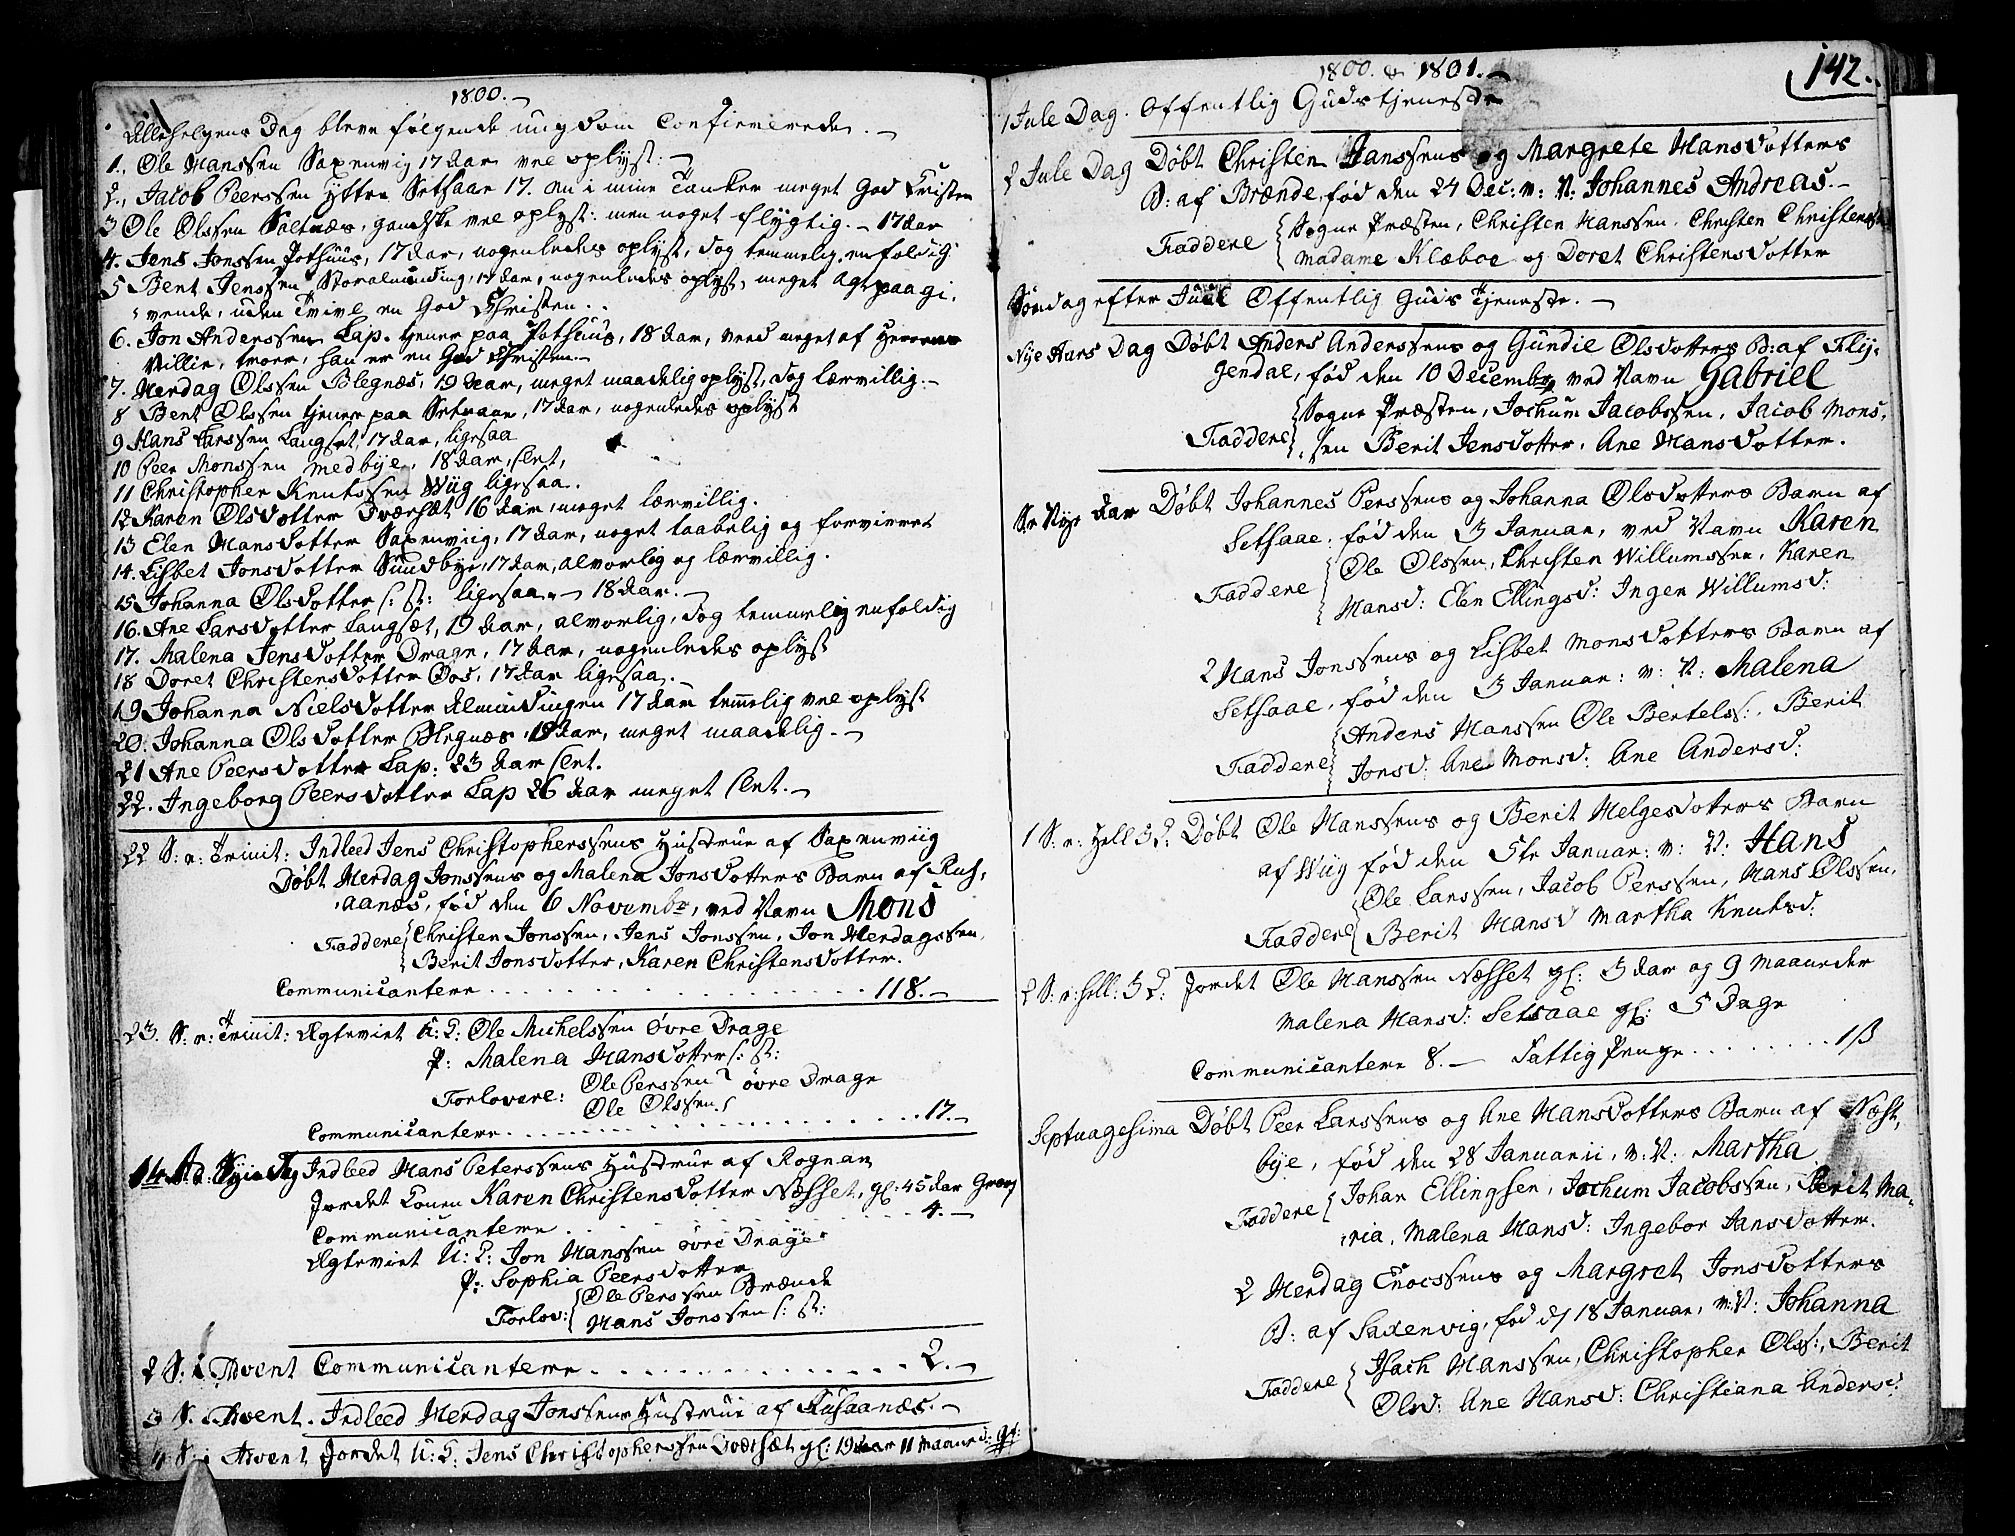 1800.
Allehelgens Dag bleve følgende ungdom Confirmerede.
1., Ole Hanssen Saxenvig 17 Aar vel oplyst:
2., Jacob Peerssen Yttre Setsaae 17. Aar i mine Tanker meget God Christen
3 Ole Olssen Saltnæs, gandske vel oplyst: men noget flygtig. 17 Aar
4. Jens Jonssen Pothuus, 17 Aar, nogenledes oplyst, dog temmelig enfoldig
5 Bent Jenssen Storalminding, 17 Aar, nogenledes oplyst, meget agtpaagi,
vende, uden Tvivl en God Christen.
6. Jon Anderssen Lap. tjener paa Pothuus, 18 Aar, veed meget af Herrens
Villie, troer, han er en God Christen.
7. Herdag Olssen Blegnæs, 19 Aar, meget maadelig oplyst, dog lærvillig.
8 Bent Olssen tjener paa Setsaae, 17 Aar, nogenledes oplyst
9 Hans Larssen Langset, 17 Aar, ligesaa
10 Peer Monssen Medbye, 18 Aar, slet,
11 Christopher Knutssen Wiig ligesaa.
12 Karen Olsdotter Dværsæt 16 Aar, meget lærvillig.
13 Elen Hansdotter Saxenviig, 17 Aar, noget taabelig og forvirret
14. Lisbet Jonsdotter Sundbye, 17 Aar, alvorlig og lærvillig.
15 Johanna Olsdotter s: st: ligesaa. 18 Aar.
16. Ane Larsdotter Langsæt, 19 Aar, alvorlig, dog temmelig enfoldig
17. Malena Jensdotter Drage, 17 Aar, nogenledes oplyst
18 Doret Christensdotter Oos, 17 Aar ligesaa.
19 Johanna Nielsdotter Almindingen 17 Aar temmelig vel oplyst
20. Johanna Olsdotter Blegnæs, 19 Aar, meget maadelig.
21 Ane Peersdotter Lap: 23 Aar slet.
22. Ingeborg Peersdotter Lap 26 Aar meget slet.
22 S: e: Trinit: Indleed Jens Christopherssens Hustrue af Saxenviig
Døbt Herdag Jonssens og Malena Jonsdotters Barn af Rus,
aanæs, født den 6 Novembr, ved Navn Mons
Faddere Christen Jonssen, Jens Jonssen, Jon Herdagssen,
Berit Jonsdotter, Karen Christensdotter.
Communicantere . . . . . . 118.
23. S: e: Trinit: Ægteviet U: K: Ole Michelssen Øvre Drage
P: Malena Hansdotter s: st:
Forlovere: Ole Perssen
Ole Olssen. øvre Drage
Communicantere . . . . . . 17.
Indleed Hans Peterssens Hustrue af Rognan
Jordet Konen Karen Christensdotter Næsset, gl: 45 Aar
Communicantere . . . . . . 4.
Ægteviet U: K: Jon Hanssen øvre Drage
P: Sophia Peersdotter
Forlov: Ole Perssen Brænde
Hans Jonssen s: st:
2 S: i Advent Communicantere . . . . . . 2.
3 S. i Advent. Indleed Herdag Jonssens Hustrue af Rusaanæs.
4 S: i Advent Jordet U: K: Jens Christopherssen gl: 19 Aar 11 Maaned:
1800. & 1801.
142.
1 Jule Dag. Offentlig Guds tjeneste
2 Jule Dag Døbt Christen Janssens og Margrete Hansdotters
B: af Brænde, fød den 24 Dec: v: N: Johannes Andreas.
Faddere Sogne Præsten, Christen Hanssen. Christen Christenssen
Madame Klæboe og Doret Christensdotter
Søndag efter Juul Offentlig Guds Tjeneste.
Nye Aars Dag Døbt Anders Anderssens og Gundie Olsdotters B: af Flij,
gendal, fød den 10 Decembr, ved Navn Gabriel
Faddere Sogne Præsten, Jochum Jacobssen, Jacob Mons,
sen Berit Jensdotter, Ane Hansdotter.
S e Nye Aar Døbt Johannes Perssens og Johanna Olsdotters Barn af
Setsaae, fød den 3 Januar, ved Navn Karen
Faddere Ole Olssen, Christen Willumssen, Karen
Hansd: Elen Ellingsd: Inger Willumsd:
2 Hans Jonssens og Lisbet Monsdotters Barn af
Setsaae, fød den 3 Januar: v: N: Malena
Faddere Anders Hanssen Ole Bertels:, Berit
Jonsd: Ane Monsd: Ane Andersd:
1 S: e: Hell 3 K: Døbt Ole Hanssens og Berit Helgesdotters Barn
af Wiig fød den 5te Januar: v: N: Hans
Faddere Ole Larssen, Jacob Perssen, Hans Olssen,
Berit Hansd Martha Knutsd:
2 S: e: Hell: 3 K: Jordet Ole Hanssen Næsset gl: 3 Aar og 9 Maaneder
Malena Hansd: Setsaae gl: 5 Dage
Communicantere 8. Fattig Penge . . . . . . 1 ß
Septuagesima Døbt Peer Larssens og Ane Hansdotters Barn af Næst,
bye, fød den 28 Januarii, v: N: Martha
Faddere Johan Ellingsen, Jochum Jacobssen, Berit Ma,
ria, Malena Hansd: Ingebor Jansdotter.
2 Herdag Enocssens og Margret Jonsdotters
B: af Saxenvig, fød d 18 Januar, v: N: Johanna
Faddere Isach Hanssen, Christopher Olss:, Berit
Olsd: Ane Hansd: Christiana Andersd: